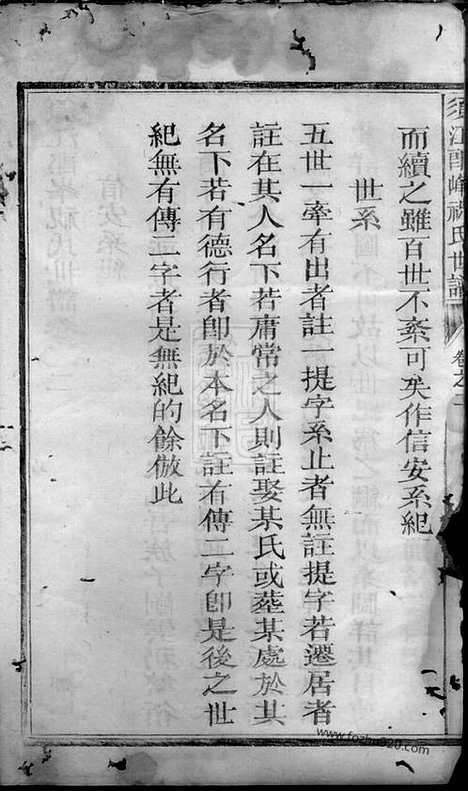 須江郎峰祝氏世譜
卷之一
而續之雖百世不紊可矣作信安系紀
世系
五世一牽有出者註一提字系止者無註提字若遷居者
註在其人名下若庸常之人則註娶某氏或塟某處於其
名下若有德行者卽於本名下註有傳二字卽是後之世
紀無有傳二字者是無紀的餘倣此
www.fozhu920.com